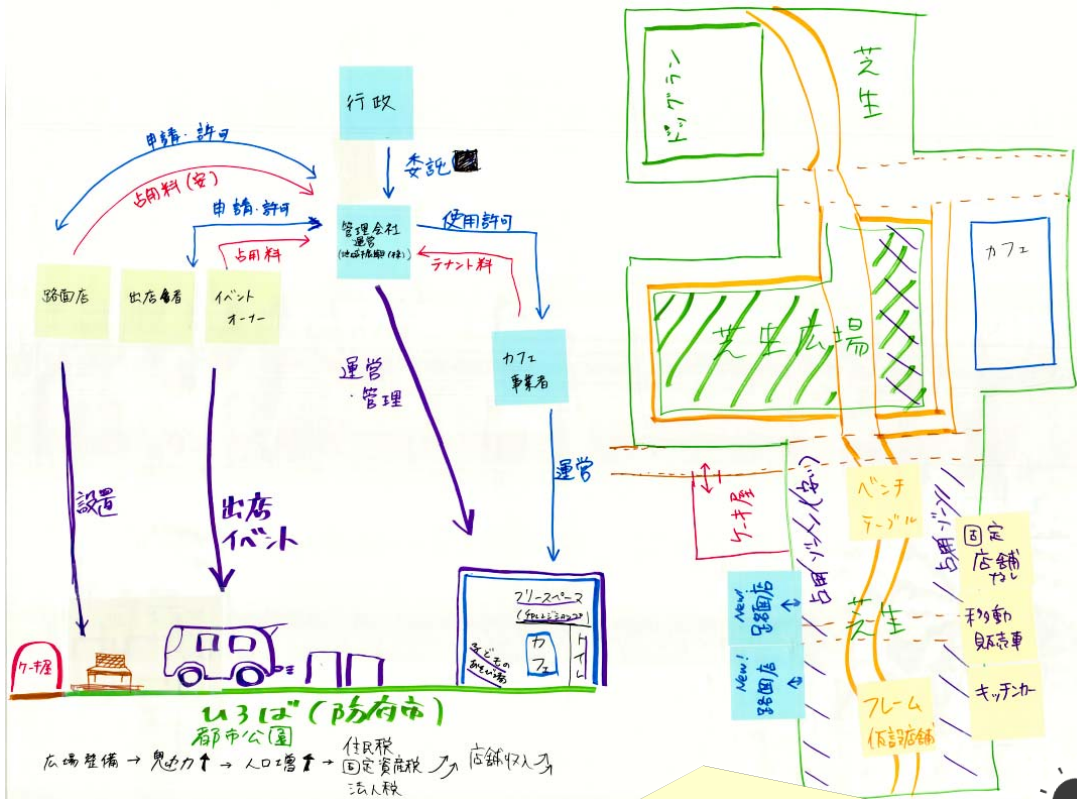 行政
委託
申請・許可
占用料(安)
申請・許可
占用料
管理会社
運営
使用許可
テナント料
路面店
出店者
イベント
オーナー
カフェ
事業者
運営
・管理
運営
設置
出店
イベント
フリースペース
カフェ
トイレ
ケーキ屋
ひろば(防府市)
都市公園
広場整備→魅力↑→人口増↑→
住民税
固定資産税
法人税
店舗収入
ドッグラン
芝生
カフェ
芝生広場
ケーキ屋
占用ゾーン(安い)
ベンチ
テーブル
占用ゾーン
固定
店舗
なし
移動
販売車
キッチンカー
New!
路面店
New!
路面店
芝生
フレーム
仮設店舗